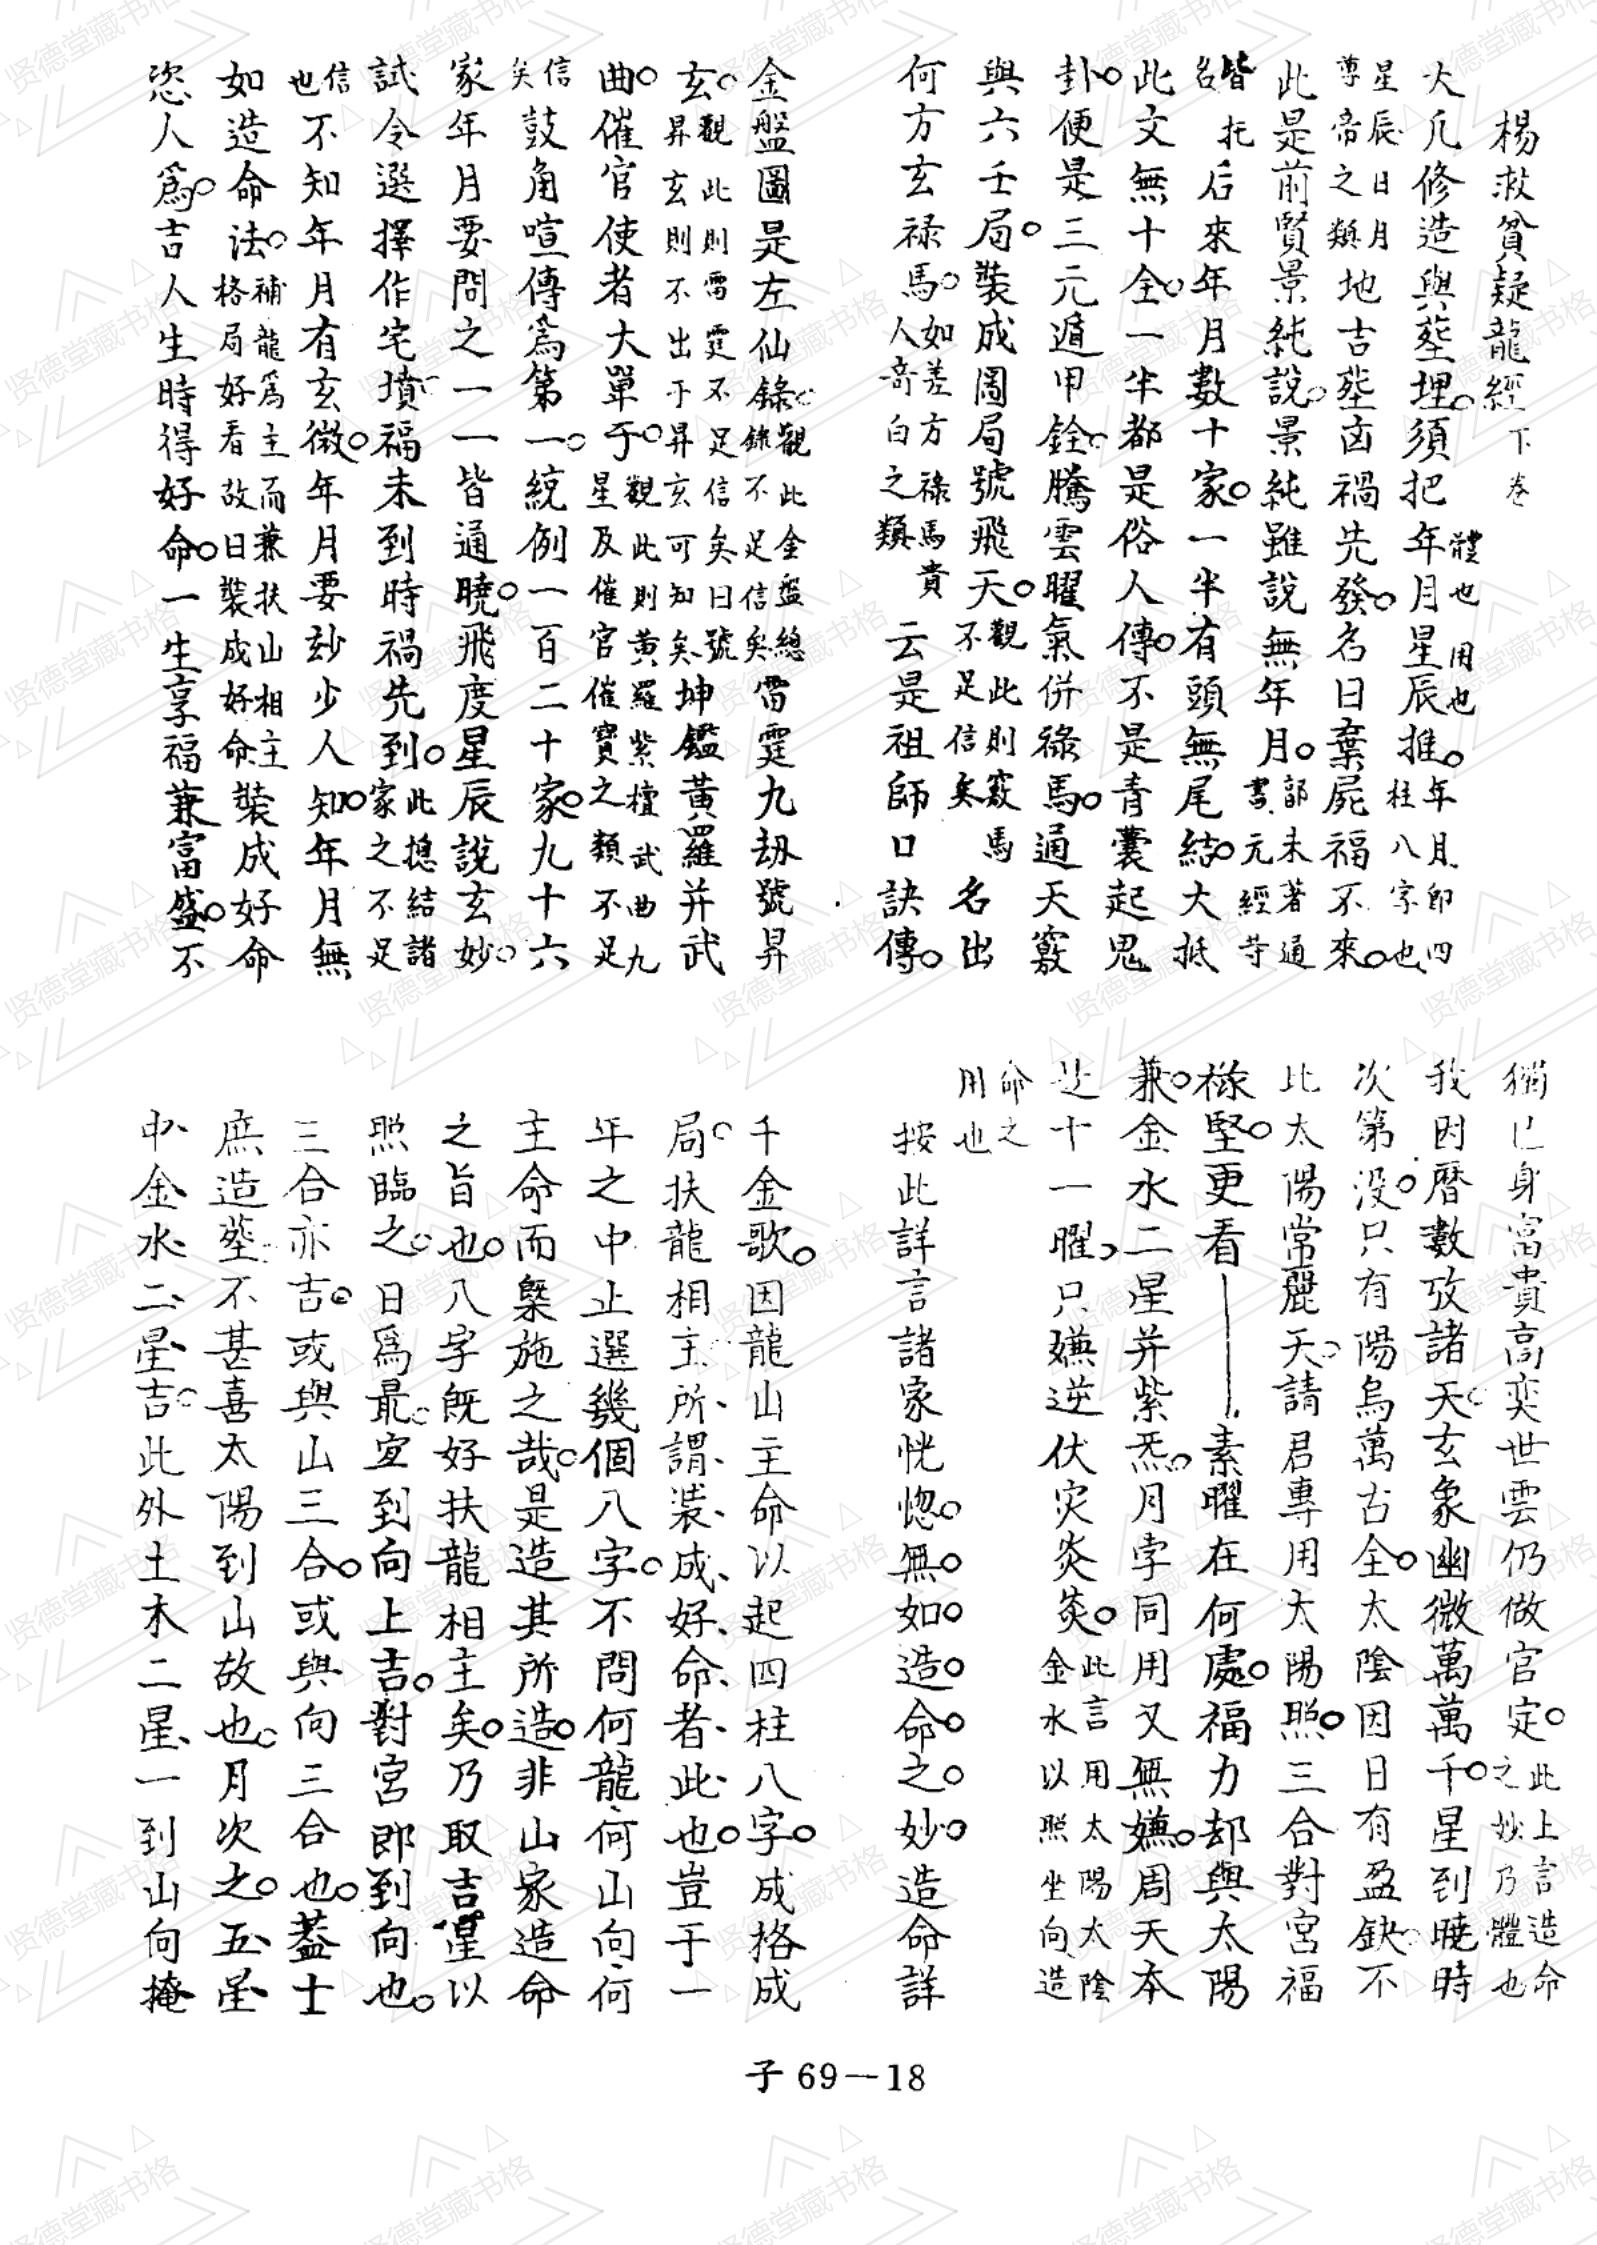 楊救貧疑龍經下卷
大凡修造與塟埋須把年月星辰推年月即四柱八字也
體也 用也
星辰日月尊帝之類地吉塟凶禍先發名曰棄屍福不來
此是前賢景純說景純雖說無年月部未著通書元經等
皆名托后來年月數十家一半有頭無尾結大抵
此文無十全一半都是俗人傳不是青囊起鬼
卦便是三元遁甲銓騰雲曜氣併祿馬通天竅
與六壬局裝成圖局號飛天觀此則竅馬不足信矣名出
何方玄祿馬如差方祿馬貴人奇白之類云是祖師口訣傳
金盤圖是左仙錄觀此金盤總錄不足信矣雷霆九劫號昇
玄觀此則雷霆不足信矣曰號昇玄則不出于昇玄可知矣坤鑑黃羅并武
曲催官使者大單于觀此則黃羅紫檀武曲九星及催官催寶之類不足
信矣鼓角喧傳爲第一統例一百二十家九十六
家年月要問之一一皆通曉飛度星辰說玄妙
試令選擇作宅墳福未到時禍先到此總結諸家之不足
信也不知年月有玄微年月要玅少人知年月無
如造命法補龍爲主而兼扶山相主格局好看故曰裝成好命裝成好命
恣人爲吉人生時得好命一生享福兼富盛不
獨已身富貴高奕世雲仍做官定此上言造命之妙乃體也
我因曆數攷諸天玄象幽微萬萬千星到曉時
次第没只有陽烏萬古全太陰因日有盈缺不
此太陽常麗天請君專用太陽照三合對宮福
祿堅更看素曜在何處福力却與太陽
兼金水二星并紫炁月孛同用又無嫌周天本
是十一曜只嫌逆伏灾炎炎此言用太陽太陰金水以照坐向造
命之用也
按此詳言諸家恍惚無如造命之妙造命詳
千金歌因龍山主命以起四柱八字成格成
局扶龍相主所謂裝成好命者此也豈于一
年之中止選幾個八字不問何龍何山何向何
主命而槩施之哉是造其所造非山家造命
之旨也八字旣好扶龍相主矣乃取吉星以
照臨之日爲最宜到向上吉對宮郎到向也
三合亦吉或與山三合或與向三合也蓋士
庶造塟不甚喜太陽到山故也月次之五星
中金水二星吉此外土木二星一到山向掩
子 69—18
贤德堂藏书格